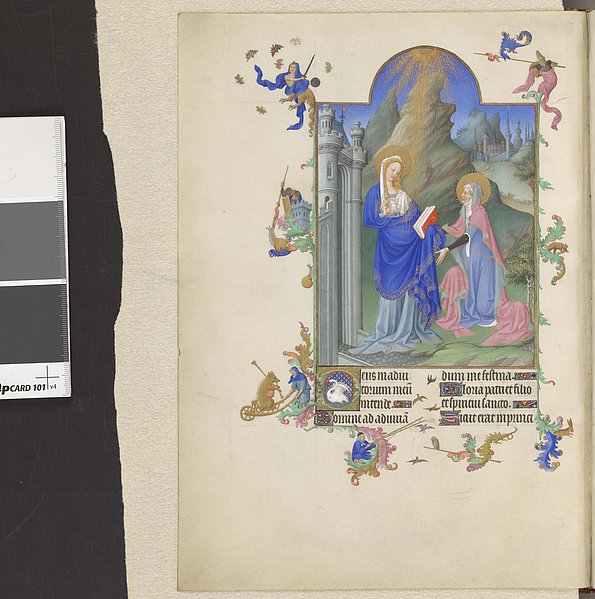 pCARD 101 v4
eus in adiu
torium meū
intende.
Domine ad adiuuā
dum me festina.
Gloria patri et filio
et spiritui sancto.
Sicut erat in princi